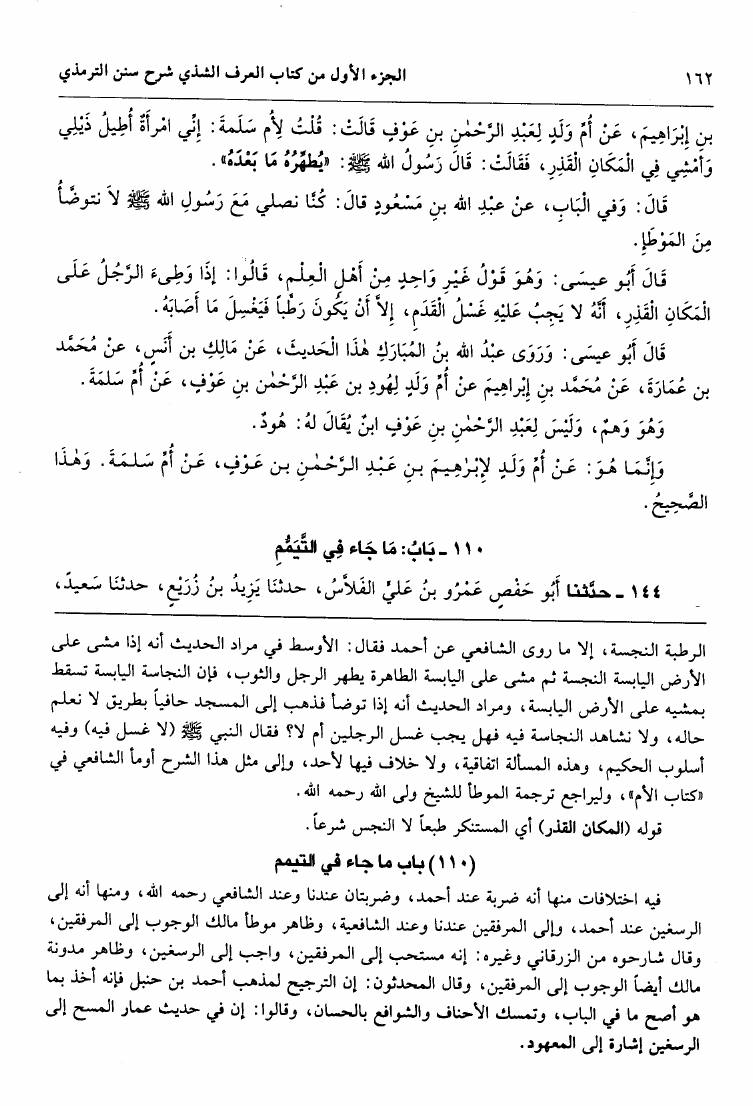 ١٦٢ الجزء الأول من كتاب العرف الشذي شرح سنن الترمذي
بنِ إبْرَاهِيمَ، عَنْ أُمِّ وَلَدٍ لِعَبْدِ الرَّحْمٰنِ بنِ عَوْفٍ قَالَتْ: قُلْتُ لِأُم سَلَمةَ: إنِّي امْرأَةٌ أُطِيلُ ذَيْلِي
وَأَمْشِي فِي الْمَكَانِ الْقَذِرِ، فَقَالَتْ: قَالَ رَسُولُ الله ﷺ: «يُطَهِّرُهُ مَا بَعْدَهُ».
قَالَ: وَفي الْبَابِ، عَنْ عبْدِ الله بنِ مَسْعُودٍ قالَ: كُنَّا نصلي مَعَ رَسُولِ الله ﷺ لاَ نتوضَّأُ
مِنَ المَوْطَإِ.
قَالَ أَبُو عِيسَى: وَهُوَ قَوْلُ غَيْرِ وَاحِدٍ مِنْ أَهْلِ الْعِلْمِ، قَالُوا: إذَا وَطِىءَ الرَّجُلُ عَلَى
الْمَكَانِ الْقَذِرِ، أَنَّهُ لا يَجِبُ عَلَيْهِ غَسْلُ الْقَدَمِ، إلاَّ أَنْ يَكُونَ رَطْباً فَيَغْسِلَ مَا أَصَابَهُ.
قَالَ أَبُو عيسَى: وَرَوَى عبْدُ الله بنُ المُبَارَكِ هٰذَا الْحَديثَ، عَنْ مَالِكِ بن أَنَسٍ، عنْ مُحَمَّد
بن عُمَارَةَ، عَنْ مُحَمَّد بنِ إِبْراهِيمَ عنْ أُمِّ وَلَدٍ لِهُودِ بن عَبْدِ الرَّحْمٰن بنِ عَوْفٍ، عَنْ أُمِّ سَلمَةَ.
وَهُوَ وَهمٌ، وَلَيْسَ لِعَبْدِ الرَّحْمٰنِ بنِ عَوْفٍ ابنٌ يُقَالَ لهُ: هُودٌ.
وَإِنَّمَا هُوَ: عَنْ أُمِّ وَلَدٍ لإبْرٰهِيمَ بنِ عَبْدِ الرَّحْمٰنِ بن عَوْفٍ، عَنْ أُمِّ سَلمَةَ. وَهٰذَا
الصَّحِيحُ.
١١٠ ـ بَابُ: مَا جَاء فِي التَّيَمُّمِ
١٤٤ ـ حدَّثنا أَبُو حَفْصٍ عَمْرُو بنُ عَليٍّ الفَلاَّسُ، حدثنَا يَزِيدُ بنُ زُرَيْعٍ، حدثنَا سَعيدٌ،
الرطبة النجسة، إلا ما روى الشافعي عن أحمد فقال: الأوسط في مراد الحديث أنه إذا مشى على
الأرض اليابسة النجسة ثم مشى على اليابسة الطاهرة يطهر الرجل والثوب، فإن النجاسة اليابسة تسقط
بمشيه على الأرض اليابسة، ومراد الحديث أنه إذا توضأ فذهب إلى المسجد حافياً بطريق لا نعلم
حاله، ولا نشاهد النجاسة فيه فهل يجب غسل الرجلين أم لا؟ فقال النبي ﷺ (لا غسل فيه) وفيه
أسلوب الحكيم، وهذه المسألة اتفاقية، ولا خلاف فيها لأحد، وإلى مثل هذا الشرح أومأ الشافعي في
«كتاب الأم»، وليراجع ترجمة الموطأ للشيخ ولى الله رحمه الله.
قوله (المكان القذر) أي المستنكر طبعاً لا النجس شرعاً.
(١١٠) باب ما جاء في التيمم
فيه اختلافات منها أنه ضربة عند أحمد، وضربتان عندنا وعند الشافعي رحمه الله، ومنها أنه إلى
الرسغين عند أحمد، وإلى المرفقين عندنا وعند الشافعية، وظاهر موطأ مالك الوجوب إلى المرفقين،
وقال شارحوه من الزرقاني وغيره: إنه مستحب إلى المرفقين، واجب إلى الرسغين، وظاهر مدونة
مالك أيضاً الوجوب إلى المرفقين، وقال المحدثون: إن الترجيح لمذهب أحمد بن حنبل فإنه أخذ بما
هو أصح ما في الباب، وتمسك الأحناف والشوافع بالحسان، وقالوا: إن في حديث عمار المسح إلى
الرسغين إشارة إلى المعهود.